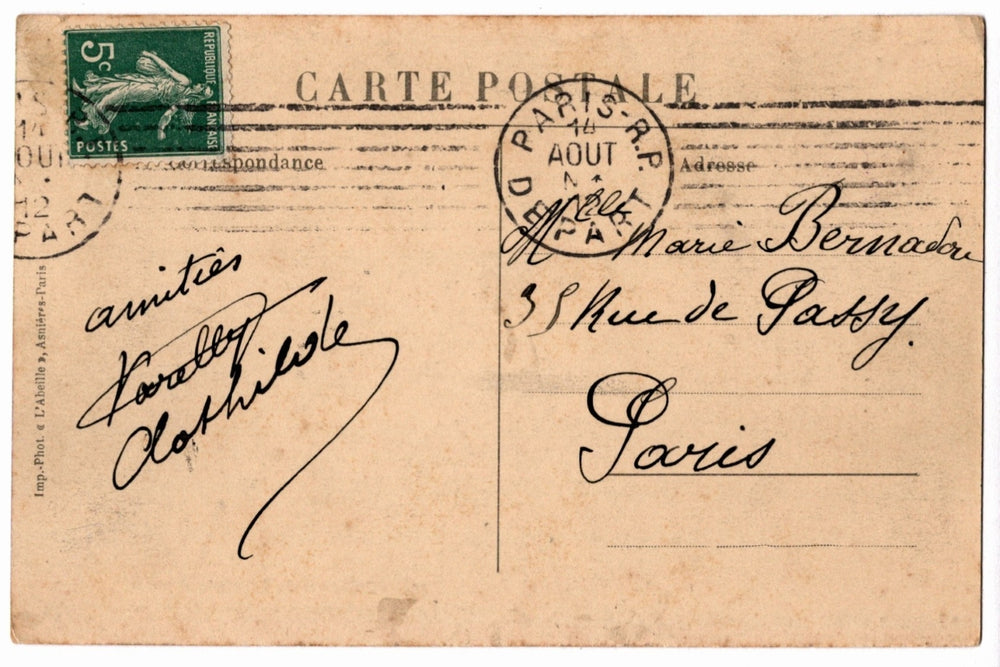 CARTE POSTALE
5c
REPUBLIQUE FRANÇAISE
POSTES
PARIS-R.P.
14
AOUT
DEPART
14
AOUT
12
PART
Correspondance
Adresse
amitiés
Clothilde
Mlle Marie Bernadou
35 Rue de Passy.
Paris
Imp.-Phot. « L'Abeille », Asnières-Paris